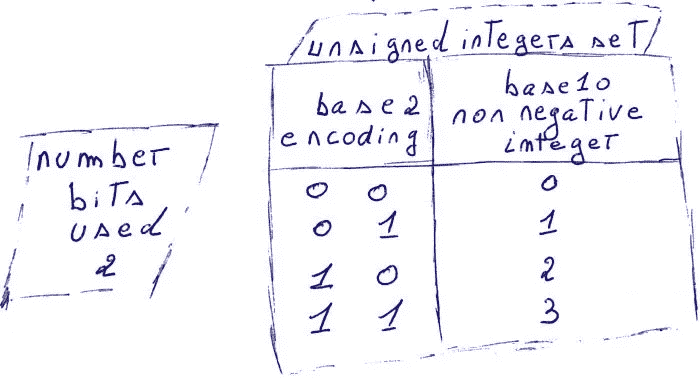 number
bits
used
2
unsigned integers set
base 2
encoding
base 10
non negative
integer
0 0 0
0 1 1
1 0 2
1 1 3